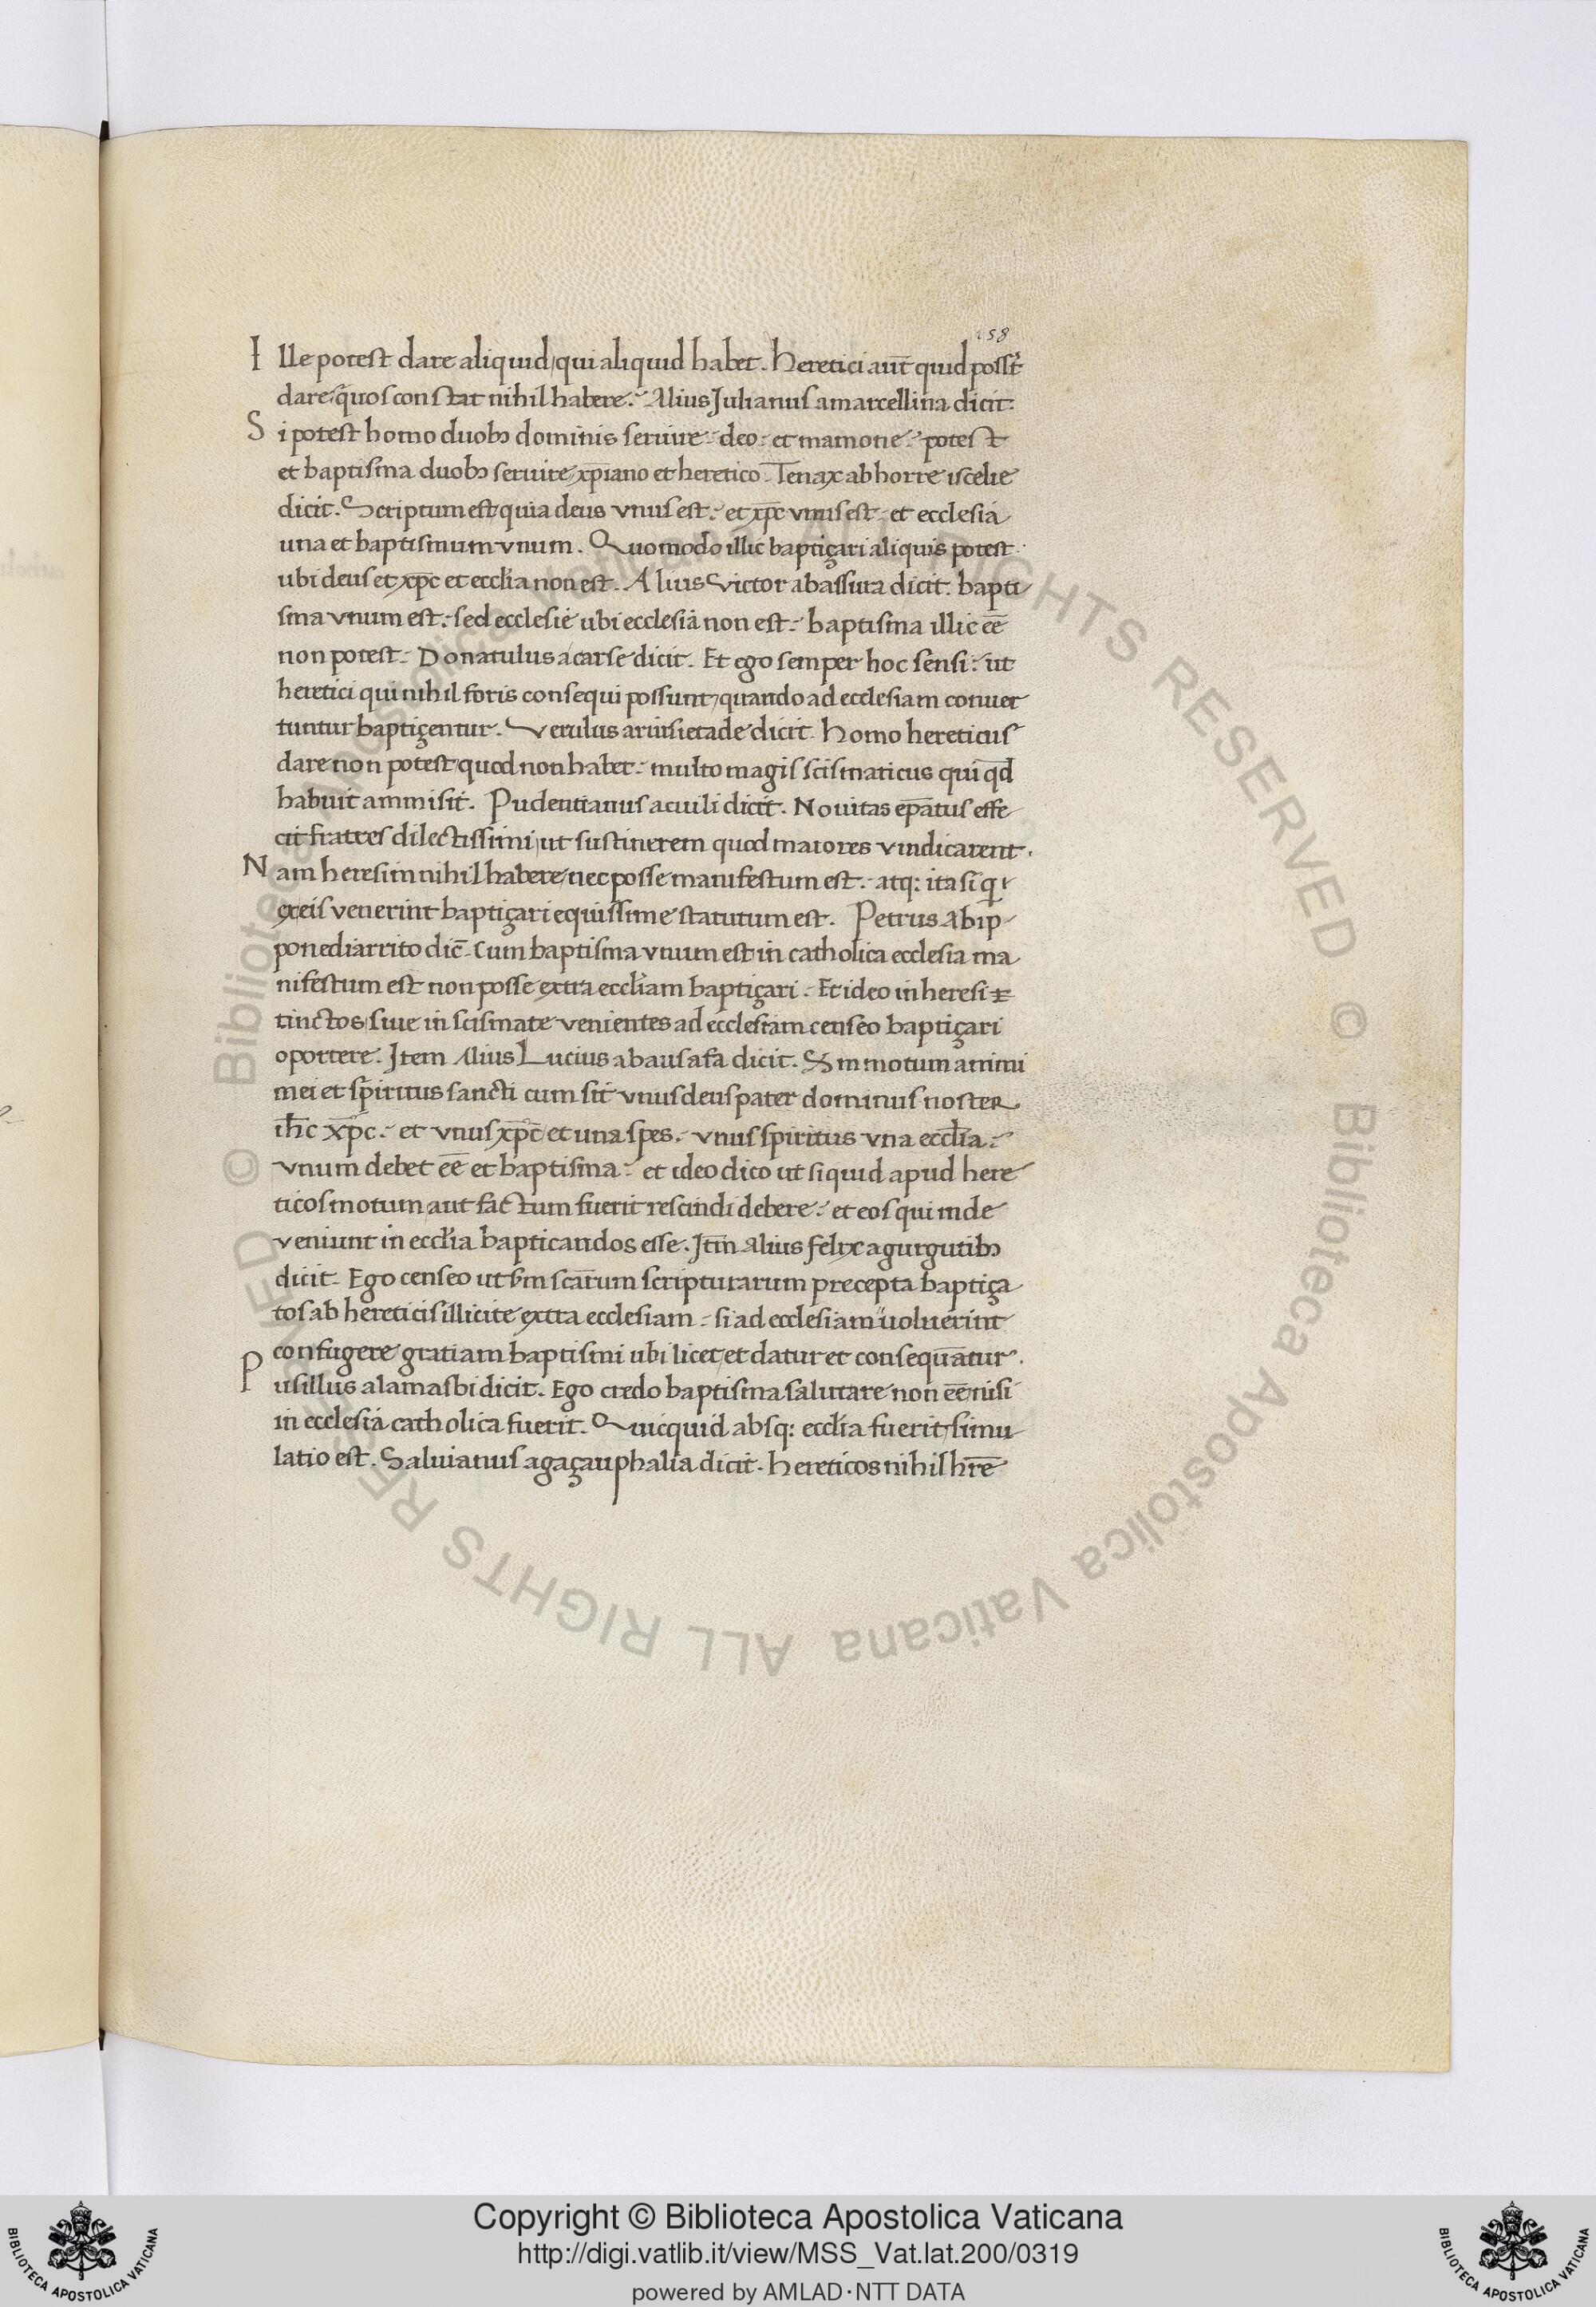 158
Ille potest dare aliquid, qui aliquid habet. Heretici aut̄ quid possūt
dare, quos constat nihil habere. Alius Julianus amarcellina dicit.
Si potest homo duobꝫ dominis seruire deo et mamone potest
et baptisma duobꝫ seruire, xp̄iano et heretico. Tenax abhorreiscelie
dicit. Scriptum est, quia deus vnus est. et xp̄c vnus est et ecclesia
una et baptismum vnum. Quomodo illic baptiçari aliquis potest
ubi deus et xp̄c et eccl̄ia non est. Alius Victor abassura dicit. bapti
sma vnum est. sed ecclesie ubi ecclesia non est. baptisma illic eē
non potest. Donatulus acarse dicit. Et ego semper hoc sensi. ut
heretici qui nihil foris consequi possunt, quando ad ecclesiam conuer
tuntur baptiçentur. Verulus arusietade dicit. Homo hereticus
dare non potest quod non habet. multo magis scismaticus qui qd̄
habuit ammisit. Pudentianus acuili dicit. Nouitas ep̄atus effe
cit fratres dilectissimi, ut sustinerem quod maiores vindicarent.
Nam heresim nihil habere, nec posse manifestum est. atq: ita si q̄
ex eis venerint baptiçari equissime statutum est. Petrus abip
ponediarrito dic̄. Cum baptisma vnum est in catholica ecclesia ma
nifestum est non posse extra eccl̄iam baptiçari. Et ideo in heresi
tinctos, siue in scismate venientes ad ecclesiam censeo baptiçari
oportere. Item Alius Lucius abausafa dicit. Sm̄ motum animi
mei et spiritus sancti cum sit vnus deus pater dominus noster
ih̄c xp̄c. et vnus xp̄c et una spes. vnus spiritus vna eccl̄ia.
vnum debet eē et baptisma. et ideo dico ut siquid apud here
ticos motum aut factum fuerit rescindi debere. et eos qui inde
veniunt in eccl̄ia bapticandos esse. Itm̄ Alius felyx agurgutibꝫ
dicit. Ego censeo ut sm̄ scārum scripturarum precepta baptiça
tos ab hereticis illicite extra ecclesiam. si ad ecclesiam uoluerint
confugere gratiam baptismi ubi licet, et datur et consequātur.
Pusillus alamasbi dicit. Ego credo baptisma salutare non eē, nisi
in ecclesia catholica fuerit. Quicquid absq: eccl̄ia fuerit, simu
latio est. Saluianus agaçauphalia dicit. Hereticos nihil hr̄e
© Biblioteca Apostolica Vaticana ALL RIGHTS RESERVED
© Biblioteca Apostolica Vaticana ALL RIGHTS RESERVED
Copyright © Biblioteca Apostolica Vaticana
http://digi.vatlib.it/view/MSS_Vat.lat.200/0319
powered by AMLAD·NTT DATA
BIBLIOTECA APOSTOLICA VATICANA
BIBLIOTECA APOSTOLICA VATICANA